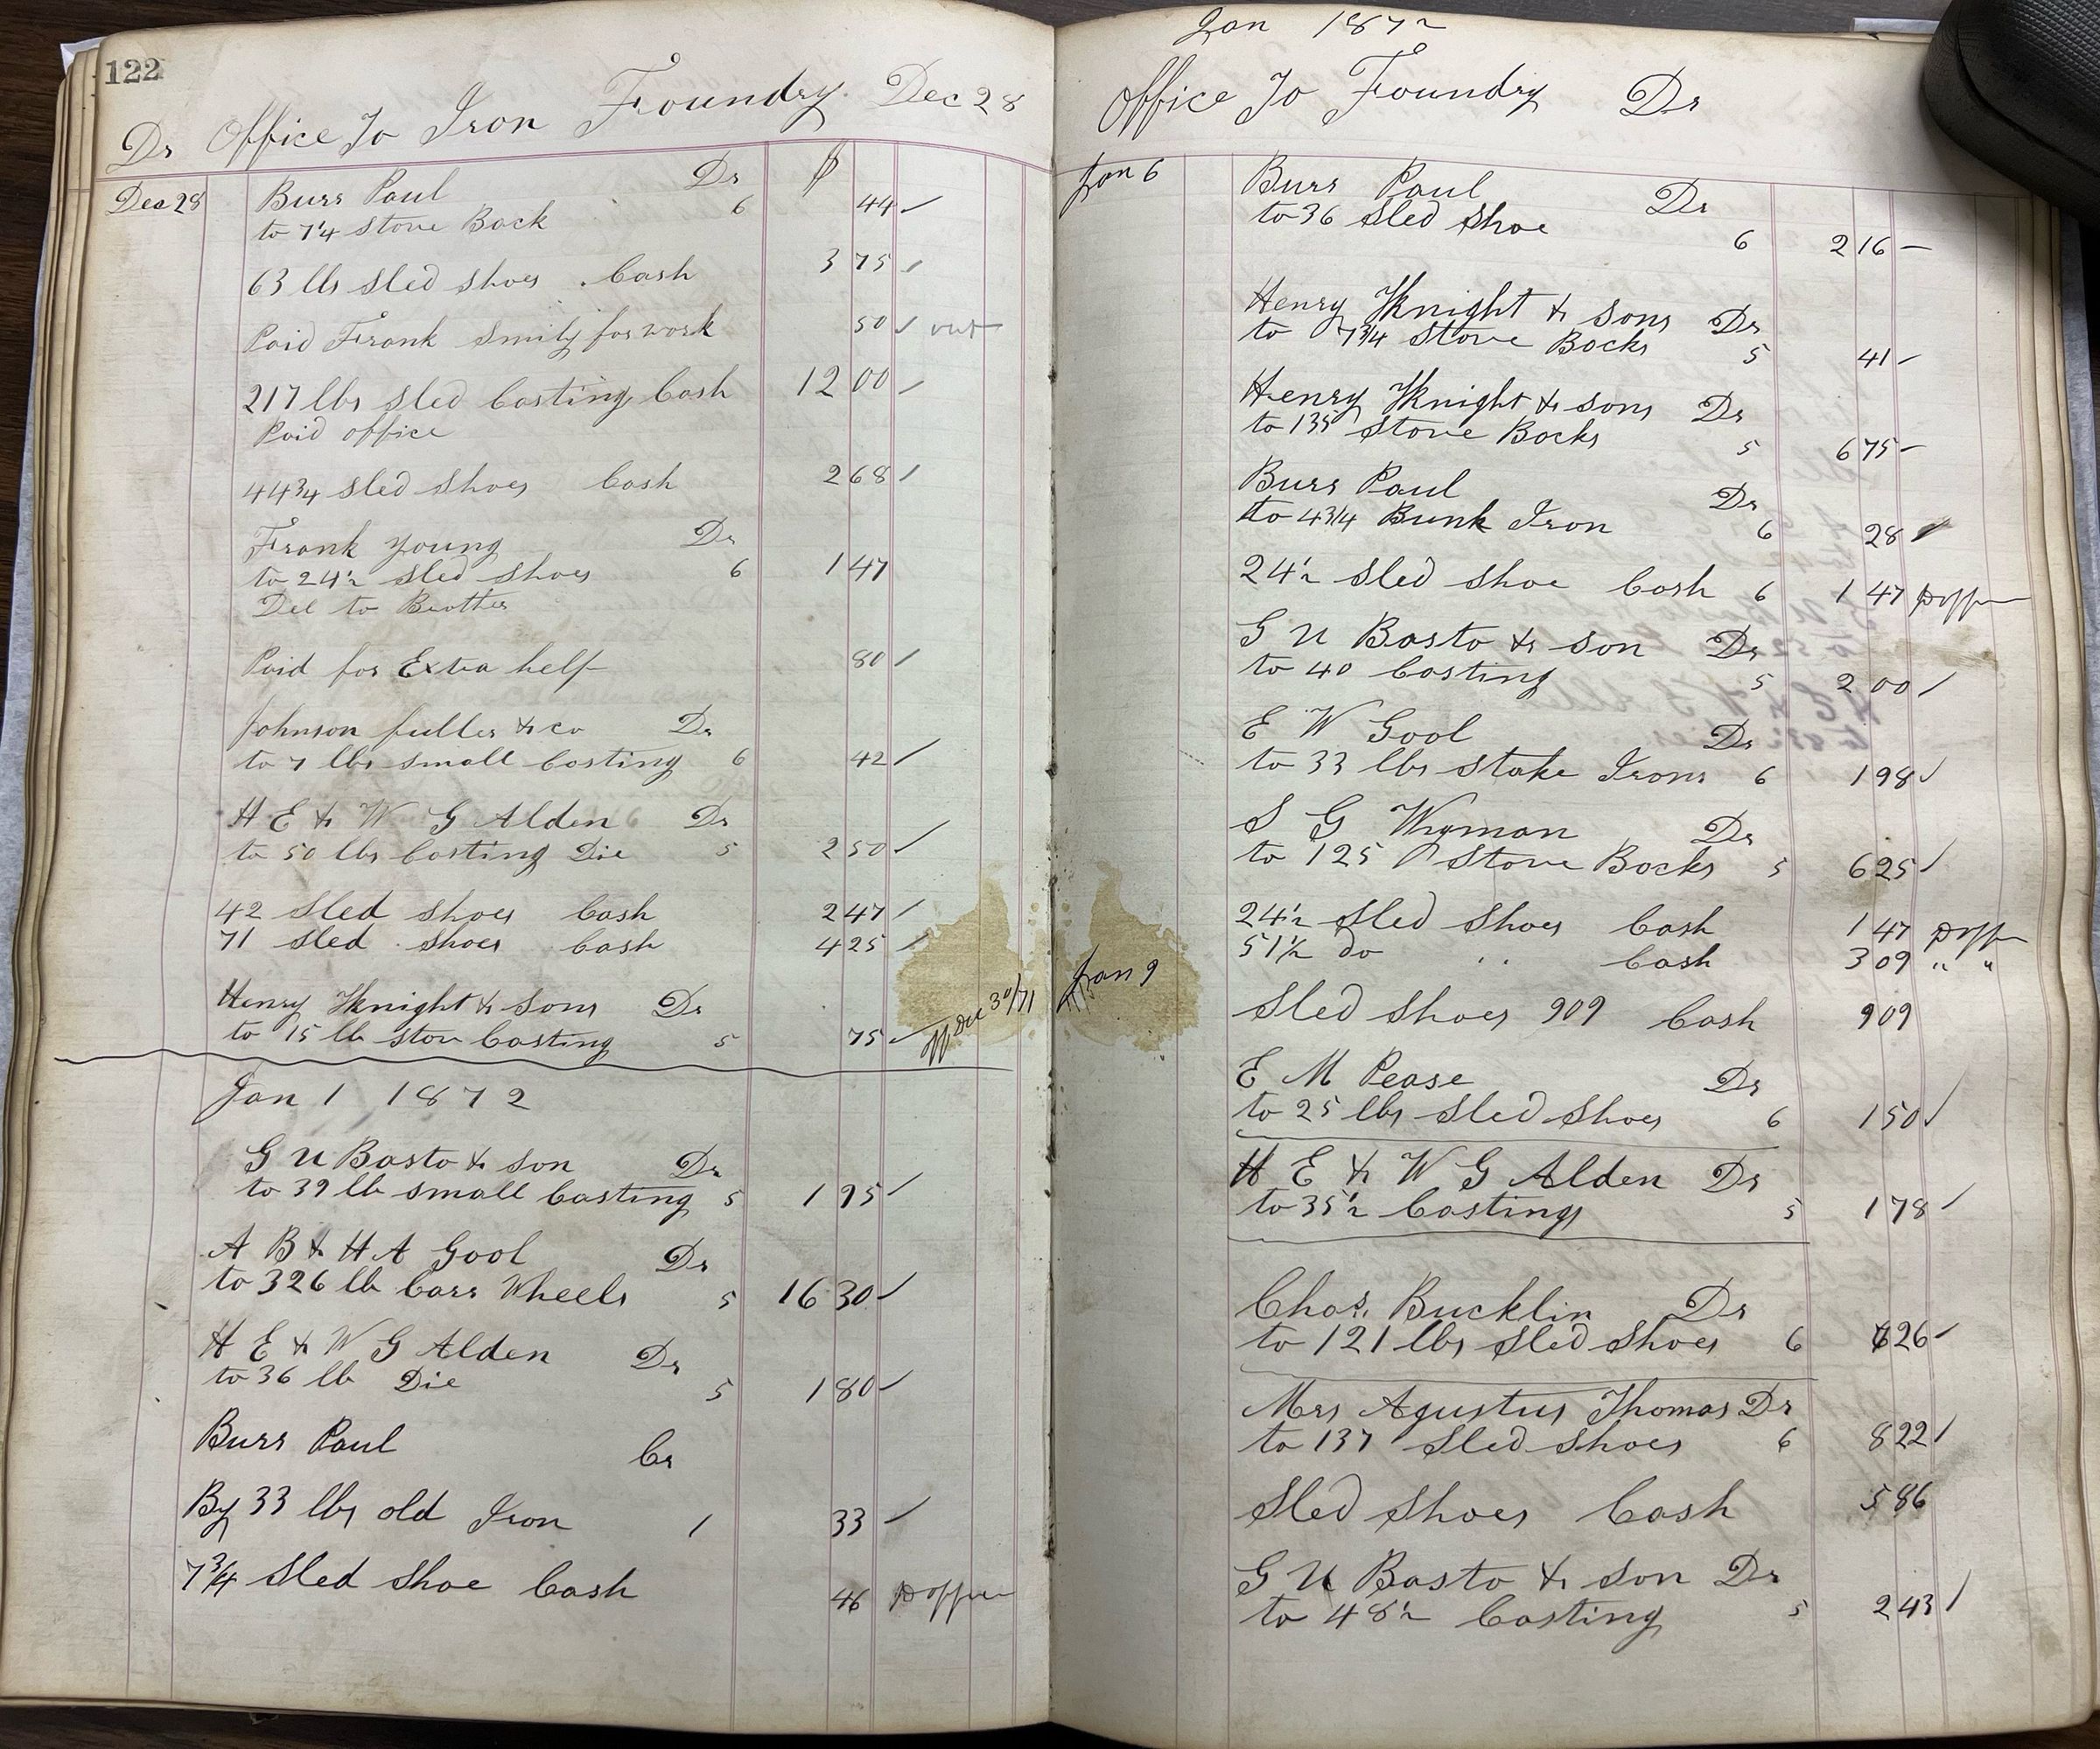 122
Dr Office To Iron Foundry Dec 28
Dec 28 Burr Paul Dr $
to 7 1/4 Stove Back 6 44 ✓
63 lbs sled shoes Cash 3 75 ✓
Paid Frank Smily for work 50 ✓
217 lbs sled Casting Cash 12 00 ✓
Paid office
44 3/4 sled shoes Cash 2 68 ✓
Frank young Dr
to 24 1/2 sled shoes 6 1 47
Del to Brother
Paid for Extra help 80 ✓
Johnson fuller & co Dr
to 7 lbs small Casting 6 42 ✓
H E & W G Alden Dr
to 50 lbs Casting Die 5 2 50 ✓
42 sled shoes Cash 2 47 ✓
71 sled shoes Cash 4 25 ✓
Henry Knight & Sons Dr
to 15 lb stov Casting 5 75 ✓ Dec 30/71
Jan 1 1872
G U Basto & son Dr
to 39 lb small Casting 5 1 95 ✓
A B & H A Gool Dr
to 326 lb Carr Wheels 5 16 30 ✓
H E & W G Alden Dr
to 36 lb Die 5 1 80 ✓
Burr Paul Cr
By 33 lbs old Iron 1 33 ✓
7 3/4 Sled Shoe Cash 46
Jan 1872
Office To Foundry Dr
Jan 6 Burr Paul Dr
to 36 Sled Shoe 6 2 16 –
Henry Knight & sons Dr
to 7 3/4 Stove Backs 5 41 –
Henry Knight & sons Dr
to 135 Stove Backs 5 6 75 –
Burr Paul Dr
to 4 3/4 Bunk Iron 6 28 ✓
24 1/2 sled shoe Cash 6 1 47
G U Basto & son Dr
to 40 Casting 5 2 00 ✓
E W Gool Dr
to 33 lbs Stake Irons 6 1 98 ✓
S G Wyman Dr
to 125 Stove Backs 5 6 25 ✓
24 1/2 Sled Shoes Cash 1 47
51 1/2 do " Cash 3 09 " "
Jan 9 Sled Shoes 909 Cash 9 09
E M Pease Dr
to 25 lbs Sled Shoes 6 1 50 ✓
H E & W G Alden Dr
to 35 1/2 Castings 5 1 78 ✓
Chas. Bucklin Dr
to 121 lbs Sled Shoes 6 26 ✓
Mrs Agustus Thomas Dr
to 137 Sled Shoes 6 8 22 ✓
Sled Shoes Cash 5 86
G U Basto & son Dr
to 48 1/2 Casting 5 2 43 ✓